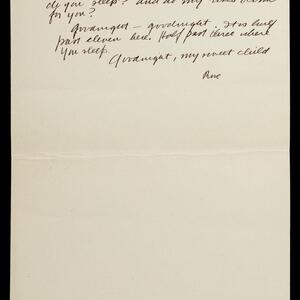 do you sleep? and do my
for you?
Goodnight — goodnight. It is half
past eleven here. Half past three where
you sleep.
Goodnight, my sweet child